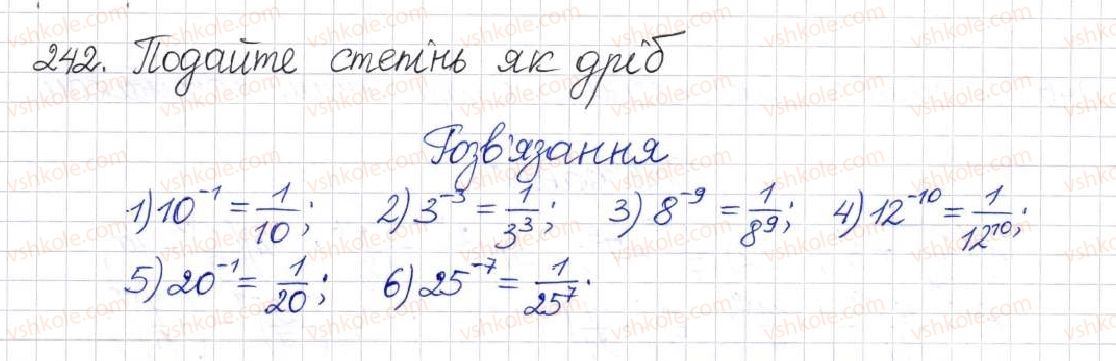 242. Подайте степінь як дріб
Розв'язання
1) 10⁻¹ = 1/10; 2) 3⁻³ = 1/3³; 3) 8⁻⁹ = 1/8⁹; 4) 12⁻¹⁰ = 1/12¹⁰;
5) 20⁻¹ = 1/20; 6) 25⁻⁷ = 1/25⁷.
vshkole.com